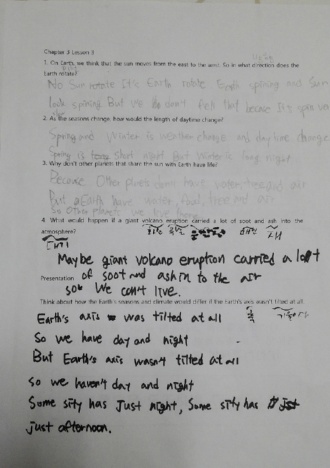 Chapter 3 Lesson 3
1. On Earth, we think that the sun moves from the east to the west. So in what direction does the
Earth rotate?
No Sun rotate It's Earth rotate Earth spining and Sun
look spining But we don't feel that because
2. As the seasons change, how would the length of daytime change?
Spring and Winter is weather change and daytime change
Spring is short night But Winter is long night
3. Why don't other planets that share the sun with Earth have life?
Because Other planets don't have water, tree and air
But Earth have water, food, tree and air
So other planets
4. What would happen if a giant volcano eruption carried a lot of soot and ash into the
atmosphere?
Maybe giant volcano eruption carried a lot
Presentation of soot and ash in to the air
so we can't live.
Think about how the Earth's seasons and climate would differ if the Earth's axis wasn't tilted at all.
Earth's axis was tilted at all
So we have day and night
But Earth's axis wasn't tilted at all
so we haven't day and night
Some sity has Just night, Some sity has
just afternoon.